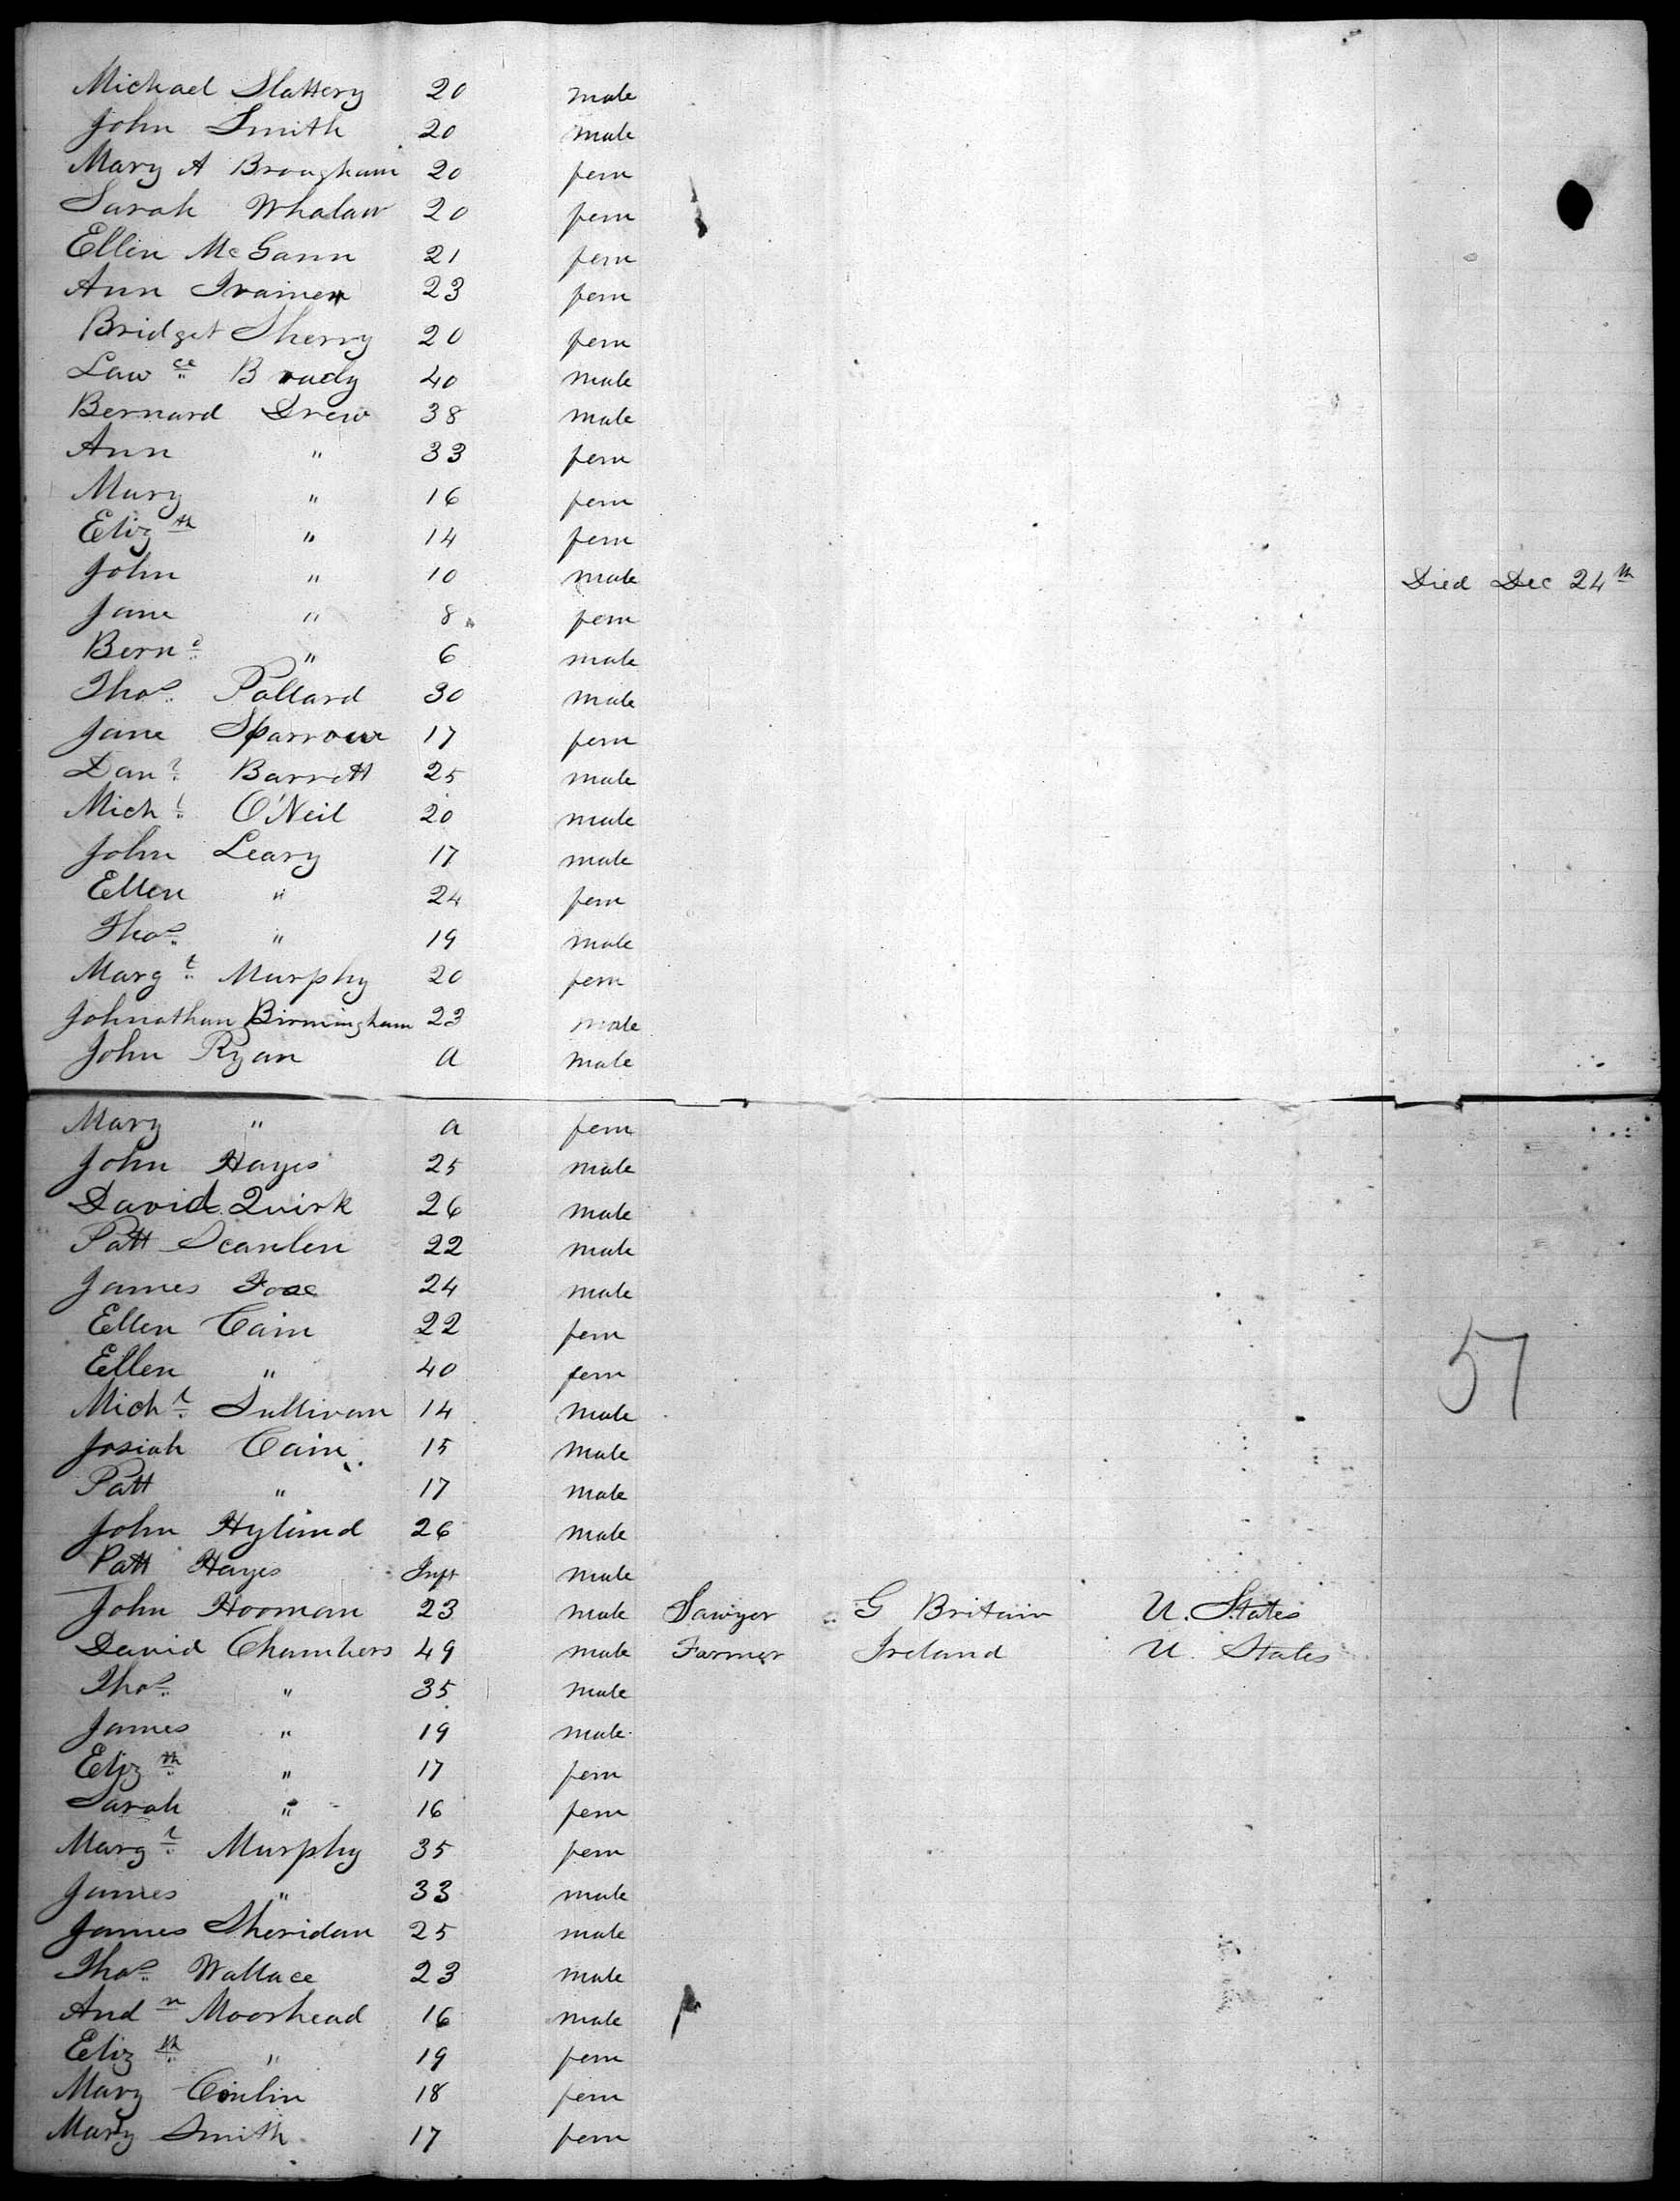 Michael Slattery 20 male
John Smith 20 male
Mary A Brougham 20 fem
Sarah Whalan 20 fem
Ellen McGann 21 fem
Ann Trainer 23 fem
Bridget Sherry 20 fem
Law ce Brady 40 male
Bernard Drew 38 male
Ann " 33 fem
Mary " 16 fem
Eliz th " 14 fem
John " 10 male Died Dec 24th
Jane " 8 fem
Bern d " 6 male
Thos Pollard 30 male
Jane Sparrow 17 fem
Dan l Barrett 25 male
Mich l O'Neil 20 male
John Leary 17 male
Ellen " 24 fem
Thos " 19 male
Marg t Murphy 20 fem
Johnathan Birmingham 23 male
John Ryan a male
Mary " a fem
John Hayes 25 male
David Quirk 26 male
Patt Scanlen 22 male
James Fox 24 male
Ellen Cain 22 fem
Ellen " 40 fem
57
Mich l Sullivan 14 male
Josiah Cain 15 male
Patt " 17 male
John Hyland 26 male
Patt Hayes Inft male
John Hooman 23 male Sawyer G Britain U. States
David Chambers 49 male Farmer Ireland U. States
Thos " 35 male
James " 19 male
Eliz th " 17 fem
Sarah " 16 fem
Marg t Murphy 35 fem
James " 33 male
James Sheridan 25 male
Thos Wallace 23 male
And w Moorhead 16 male
Eliz th " 19 fem
Mary Conlin 18 fem
Mary Smith 17 fem